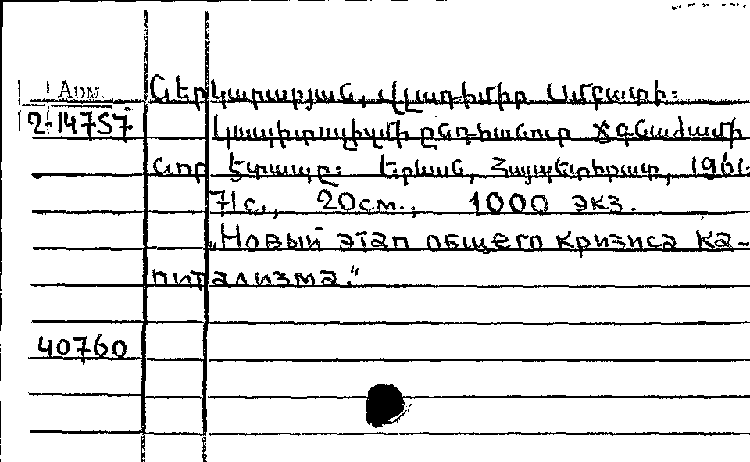 Арм.
2-14757
Ներկարարյան, Վլադիմիր Սմբատի:
Կապիտալիզմի ընդհանուր ճգնաժամի
նոր էտապը: Երևան, Հայպետհրատ, 1961.
71с., 20см., 1000 экз.
„Новый этап общего кризиса ка-
питализма."
40760